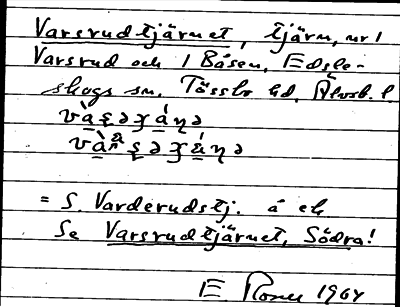 Varsrudtjärnet, tjärn, nr 1
Varsrud och 1 Båsen, Edsle-
skogs sn. Tössbo hd. Älvsb. l.
= S. Varderudstj. å ek
Se Varsrudtjärnet, Södra!
E 1964